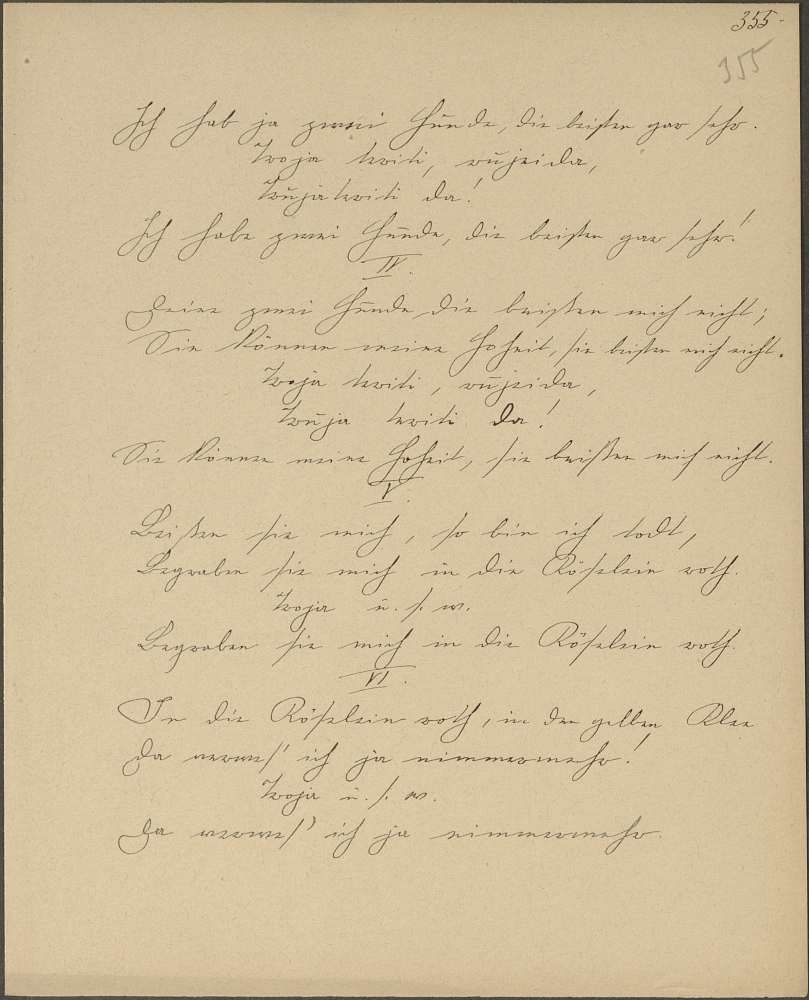 355.
355
Ich hab ja zwei Hunde, die beißen gar sehr.
Troja triti, rujeida,
Trujatriti da!
Ich habe zwei Hunde, die beißen gar sehr!
IV.
Deine zwei Hunde die beißen mich nicht;
Sie können meine Hoheit, sie beißen mich nicht.
Troja triti, rujeida,
Truja triti da!
Sie können meine Hoheit, sie beißen mich nicht.
V.
Beißen sie mich, so bin ich todt,
Begraben sie mich in die Röselein roth.
Troja u. s. w.
Begraben sie mich in die Röselein roth.
VI.
In die Röselein roth, in den gelben Klee
Da verwes' ich ja nimmermehr!
Troja u. s. w.
Da verwes' ich ja nimmermehr.